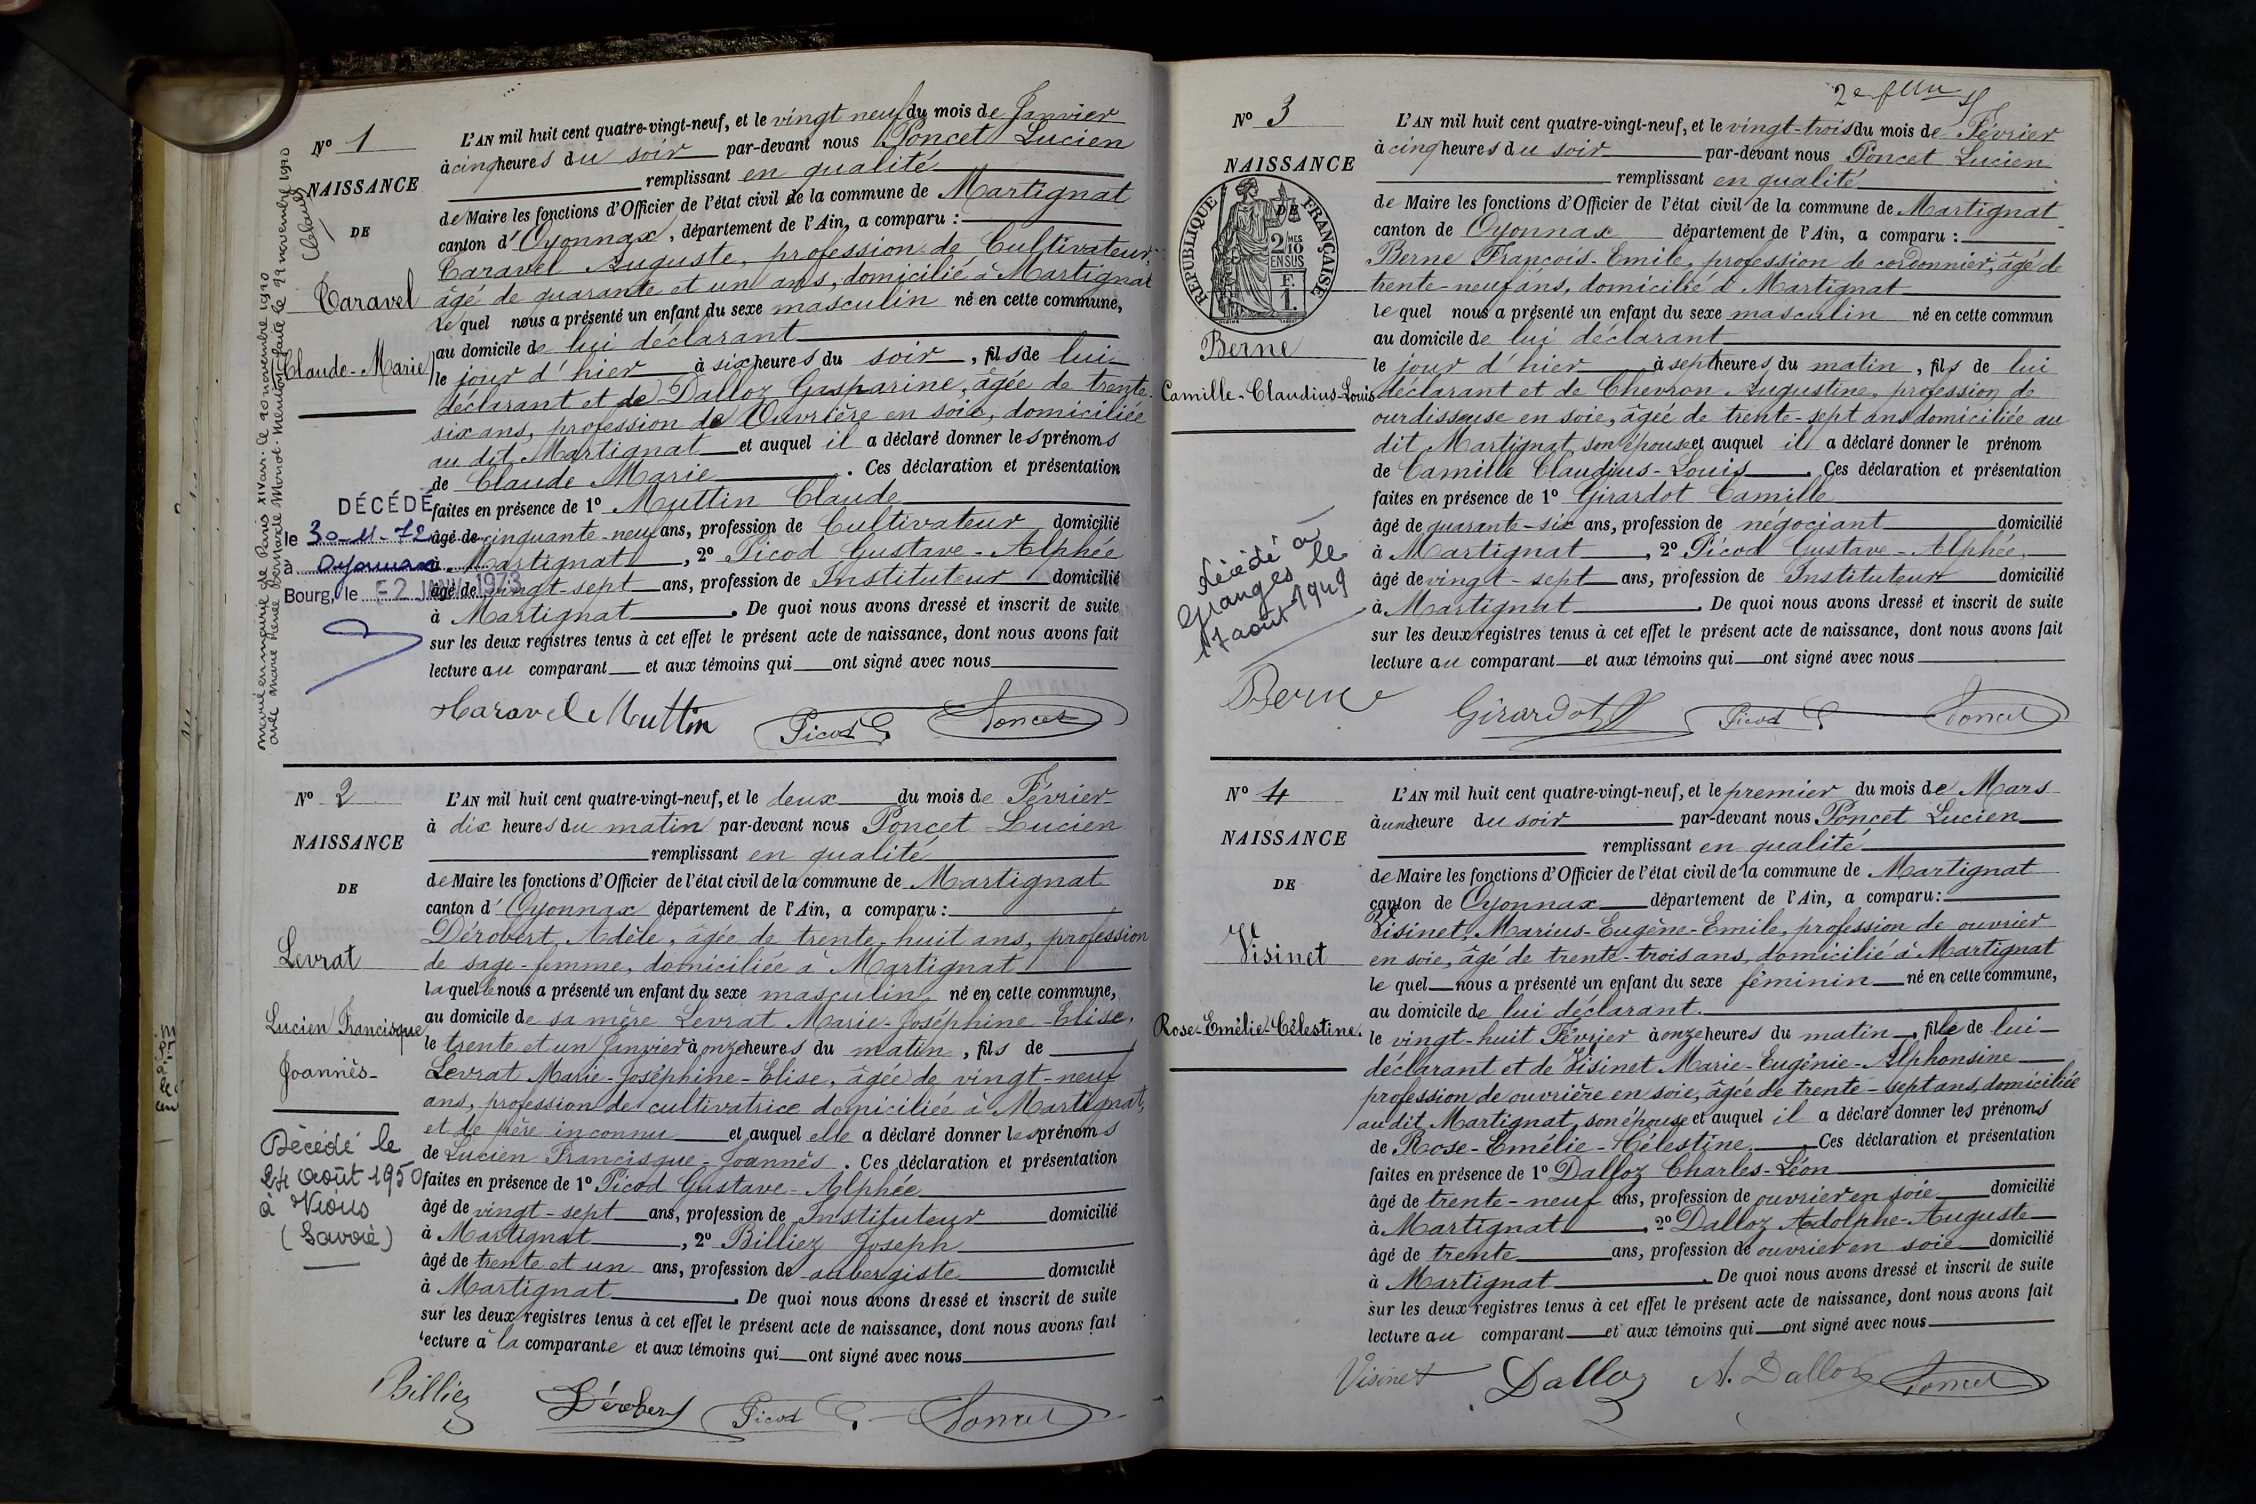 Nº 1
NAISSANCE
DE
Caravel
Claude-Marie
marié en mairie de Paris XIV arr. le 20 novembre 1920
avec Marie Renée Bernarde Monot. Mention faite le 29 novembre 1920
DÉCÉDÉ
le 30-11-72
à Oyonnax
Bourg, le -2 JANV. 1973
L'AN mil huit cent quatre-vingt-neuf, et le vingt neuf du mois de Janvier
à cinq heures du soir par-devant nous Poncet Lucien
remplissant en qualité
de Maire les fonctions d'Officier de l'état civil de la commune de Martignat
canton d'Oyonnax, département de l'Ain, a comparu :
Caravel Auguste, profession de Cultivateur,
âgé de quarante et un ans, domicilié à Martignat
lequel nous a présenté un enfant du sexe masculin né en cette commune,
au domicile de lui déclarant
le jour d'hier à six heures du soir, fils de lui
déclarant et de Dalloz Gasparine, âgée de trente-
six ans, profession de Ouvrière en soie, domiciliée
au dit Martignat et auquel il a déclaré donner les prénoms
de Claude Marie. Ces déclaration et présentation
faites en présence de 1º Muttin Claude
âgé de cinquante-neuf ans, profession de Cultivateur domicilié
à Martignat, 2º Picod Gustave-Alphée
âgé de vingt-sept ans, profession de Instituteur domicilié
à Martignat. De quoi nous avons dressé et inscrit de suite
sur les deux registres tenus à cet effet le présent acte de naissance, dont nous avons fait
lecture au comparant et aux témoins qui ont signé avec nous
Caravel Muttin Picod G. Poncet
Nº 2
NAISSANCE
DE
Levrat
Lucien Francisque
Joannès-
Décédé le
24 août 1950
à
(Savoie)
L'AN mil huit cent quatre-vingt-neuf, et le deux du mois de Février
à dix heures du matin par-devant nous Poncet Lucien
remplissant en qualité
de Maire les fonctions d'Officier de l'état civil de la commune de Martignat
canton d'Oyonnax département de l'Ain, a comparu :
Dérobert, Adèle, âgée de trente-huit ans, profession
de sage-femme, domiciliée à Martignat
laquelle nous a présenté un enfant du sexe masculin né en cette commune,
au domicile de sa mère Levrat Marie-Joséphine-Elise,
le trente et un Janvier à onze heures du matin, fils de
Levrat Marie-Joséphine-Elise, âgée de vingt-neuf
ans, profession de cultivatrice domiciliée à Martignat,
et de père inconnu et auquel elle a déclaré donner les prénoms
de Lucien Francisque-Joannès. Ces déclaration et présentation
faites en présence de 1º Picod Gustave-Alphée
âgé de vingt-sept ans, profession de Instituteur domicilié
à Martignat, 2º Billiez Joseph
âgé de trente et un ans, profession de aubergiste domicilié
à Martignat. De quoi nous avons dressé et inscrit de suite
sur les deux registres tenus à cet effet le présent acte de naissance, dont nous avons fait
lecture à la comparante et aux témoins qui ont signé avec nous
Billiez Dérobert Picod G. Poncet
Nº 3
NAISSANCE
DE
RÉPUBLIQUE FRANÇAISE
2 MES
10
EN SUS
F.
1.
Berne
Camille-Claudius-Louis
Décédé à
Granges le
17 août 1949
L'AN mil huit cent quatre-vingt-neuf, et le vingt-trois du mois de Février
à cinq heures du soir par-devant nous Poncet Lucien
remplissant en qualité
de Maire les fonctions d'Officier de l'état civil de la commune de Martignat
canton de Oyonnax département de l'Ain, a comparu :
Berne François-Emile, profession de cordonnier, âgé de
trente-neuf ans, domicilié à Martignat
lequel nous a présenté un enfant du sexe masculin né en cette commun
au domicile de lui déclarant
le jour d'hier à sept heures du matin, fils de lui
déclarant et de Chevron Augustine, profession de
ourdisseuse en soie, âgée de trente-sept ans domiciliée au
dit Martignat son épouse et auquel il a déclaré donner le prénom
de Camille Claudius-Louis. Ces déclaration et présentation
faites en présence de 1º Girardot Camille
âgé de quarante-six ans, profession de négociant domicilié
à Martignat, 2º Picod Gustave-Alphée
âgé de vingt-sept ans, profession de Instituteur domicilié
à Martignat. De quoi nous avons dressé et inscrit de suite
sur les deux registres tenus à cet effet le présent acte de naissance, dont nous avons fait
lecture au comparant et aux témoins qui ont signé avec nous
Berne Girardot Picod G. Poncet
Nº 4
NAISSANCE
DE
Visinet
Rose-Emélie-Célestine.
L'AN mil huit cent quatre-vingt-neuf, et le premier du mois de Mars
à une heure du soir par-devant nous Poncet Lucien
remplissant en qualité
de Maire les fonctions d'Officier de l'état civil de la commune de Martignat
canton de Oyonnax département de l'Ain, a comparu :
Visinet, Marius-Eugène-Emile, profession de ouvrier
en soie, âgé de trente-trois ans, domicilié à Martignat
lequel nous a présenté un enfant du sexe féminin né en cette commune,
au domicile de lui déclarant.
le vingt-huit Février à onze heures du matin, fille de lui
déclarant et de Visinet Marie-Eugénie-Alphonsine
profession de ouvrière en soie, âgée de trente-sept ans, domiciliée
au dit Martignat, son épouse et auquel il a déclaré donner les prénoms
de Rose-Emélie-Célestine. Ces déclaration et présentation
faites en présence de 1º Dalloz Charles-Léon
âgé de trente-neuf ans, profession de ouvrier en soie domicilié
à Martignat, 2º Dalloz Adolphe-Auguste
âgé de trente ans, profession de ouvrier en soie domicilié
à Martignat. De quoi nous avons dressé et inscrit de suite
sur les deux registres tenus à cet effet le présent acte de naissance, dont nous avons fait
lecture au comparant et aux témoins qui ont signé avec nous
Visinet Dalloz A. Dalloz Poncet